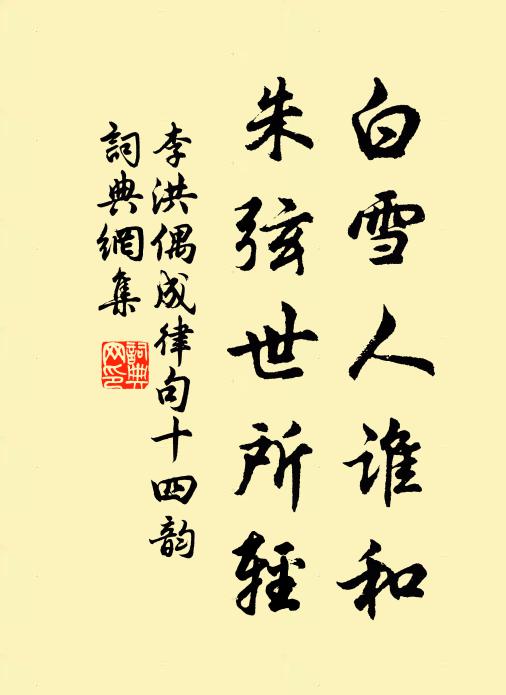 白雪人谁和
朱弦世所輕
李洪偶成律句十四韵
詞典網集
詞典网印